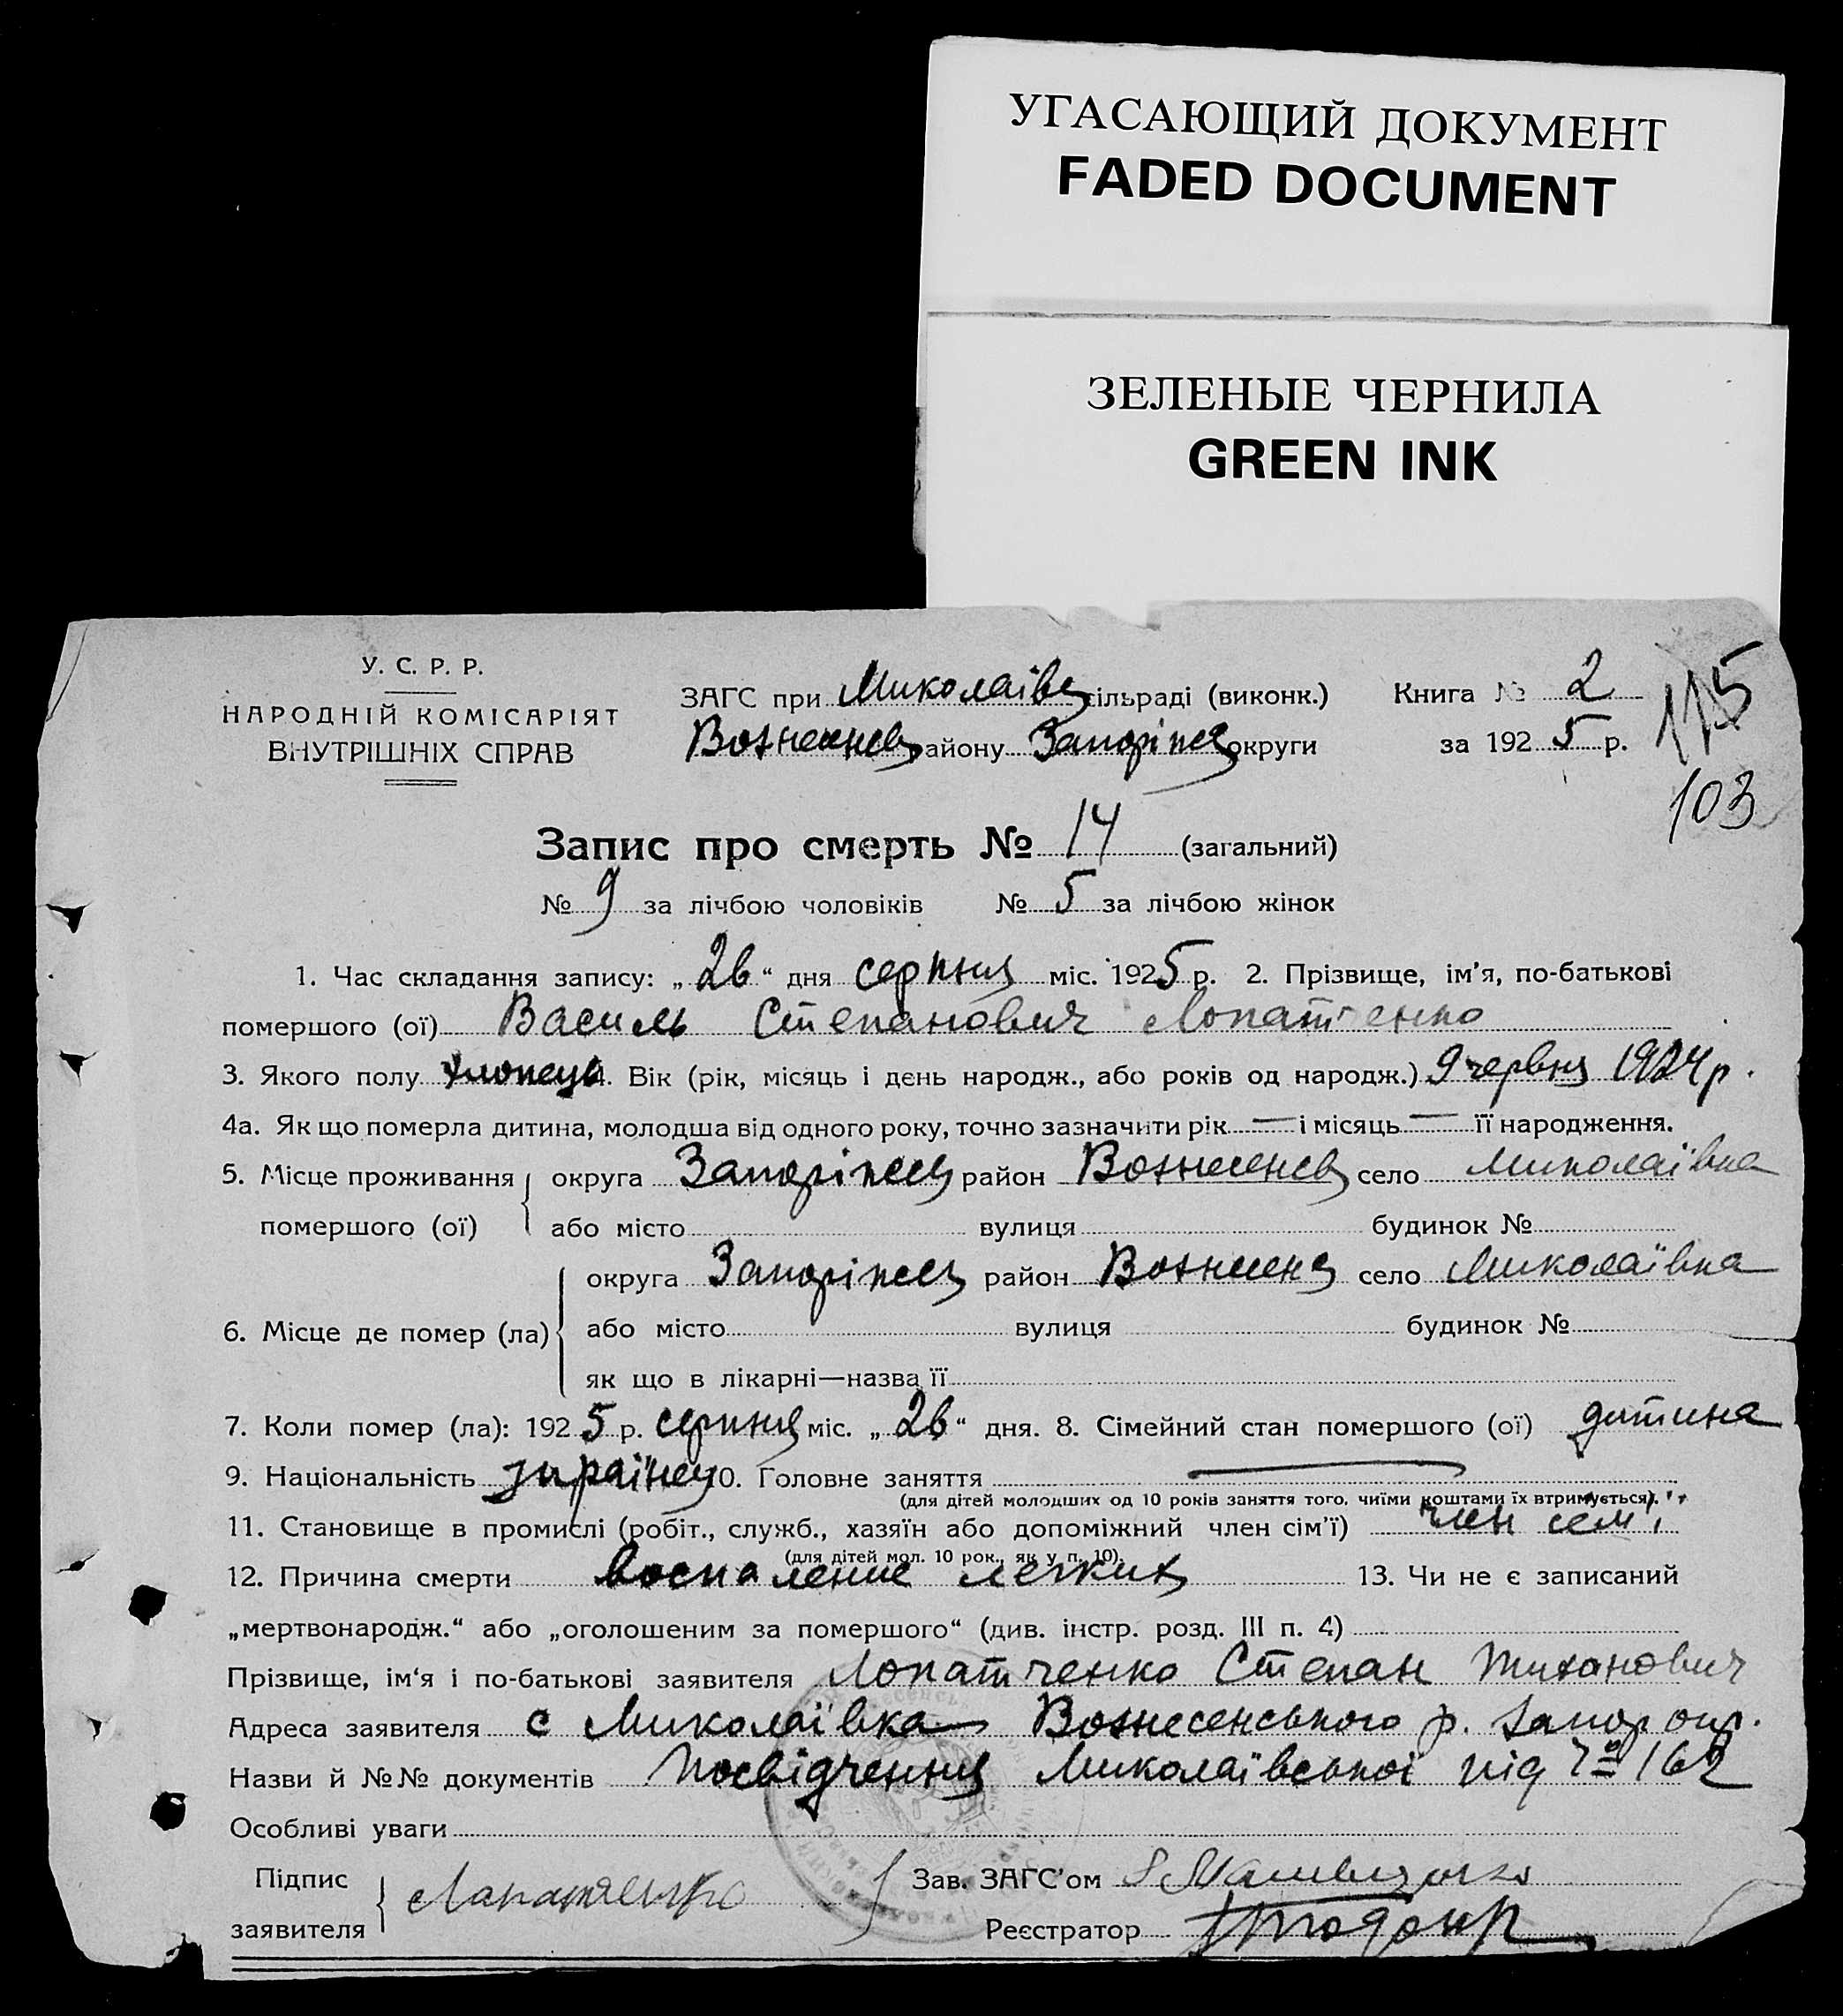 УГАСАЮЩИЙ ДОКУМЕНТ
FADED DOCUMENT
ЗЕЛЕНЫЕ ЧЕРНИЛА
GREEN INK
У. С. Р. Р.
НАРОДНІЙ КОМІСАРІЯТ
ВНУТРІШНІХ СПРАВ
ЗАГС при Миколаївс сільраді (виконк.) Книга № 2
Вознесенськ району Запоріжс округи за 1925 р.
115
103
Запис про смерть № 14 (загальний)
№ 9 за лічбою чоловіків № 5 за лічбою жінок
1. Час складання запису: „26“ дня серпня міс. 1925 р. 2. Прізвище, ім'я, по-батькові
помершого (ої) Василь Степанович Лопатченко
3. Якого полу хлопець 4. Вік (рік, місяць і день народж., або років од народж.) 9 червня 1924 р.
4а. Як що померла дитина, молодша від одного року, точно зазначити рік — і місяць — її народження.
5. Місце проживання помершого (ої) округа Запоріжс район Вознесенс село Миколаївка
або місто вулиця будинок №
6. Місце де помер (ла) округа Запоріжс район Вознесенс село Миколаївка
або місто вулиця будинок №
як що в лікарні—назва її
7. Коли помер (ла): 1925 р. серпня міс. „26“ дня. 8. Сімейний стан помершого (ої) дитина
9. Національність українец 10. Головне заняття —
(для дітей молодших од 10 років заняття того, чиїми коштами їх втримується).
11. Становище в промислі (робіт., служб., хазяїн або допоміжний член сім'ї) член сем'ї
(для дітей мол. 10 рок., як у п. 10).
12. Причина смерти воспаление легких 13. Чи не є записаний
„мертвонародж.“ або „оголошеним за помершого“ (див. інстр. розд. III п. 4)
Прізвище, ім'я і по-батькові заявителя Лопатченко Степан
Адреса заявителя с Миколаївка Вознесенського р. Запор окр.
Назви й №№ документів Посвідчення Миколаївської під 162
Особливі уваги
Підпис заявителя Лапатченко Зав. ЗАГС'ом
Реєстратор